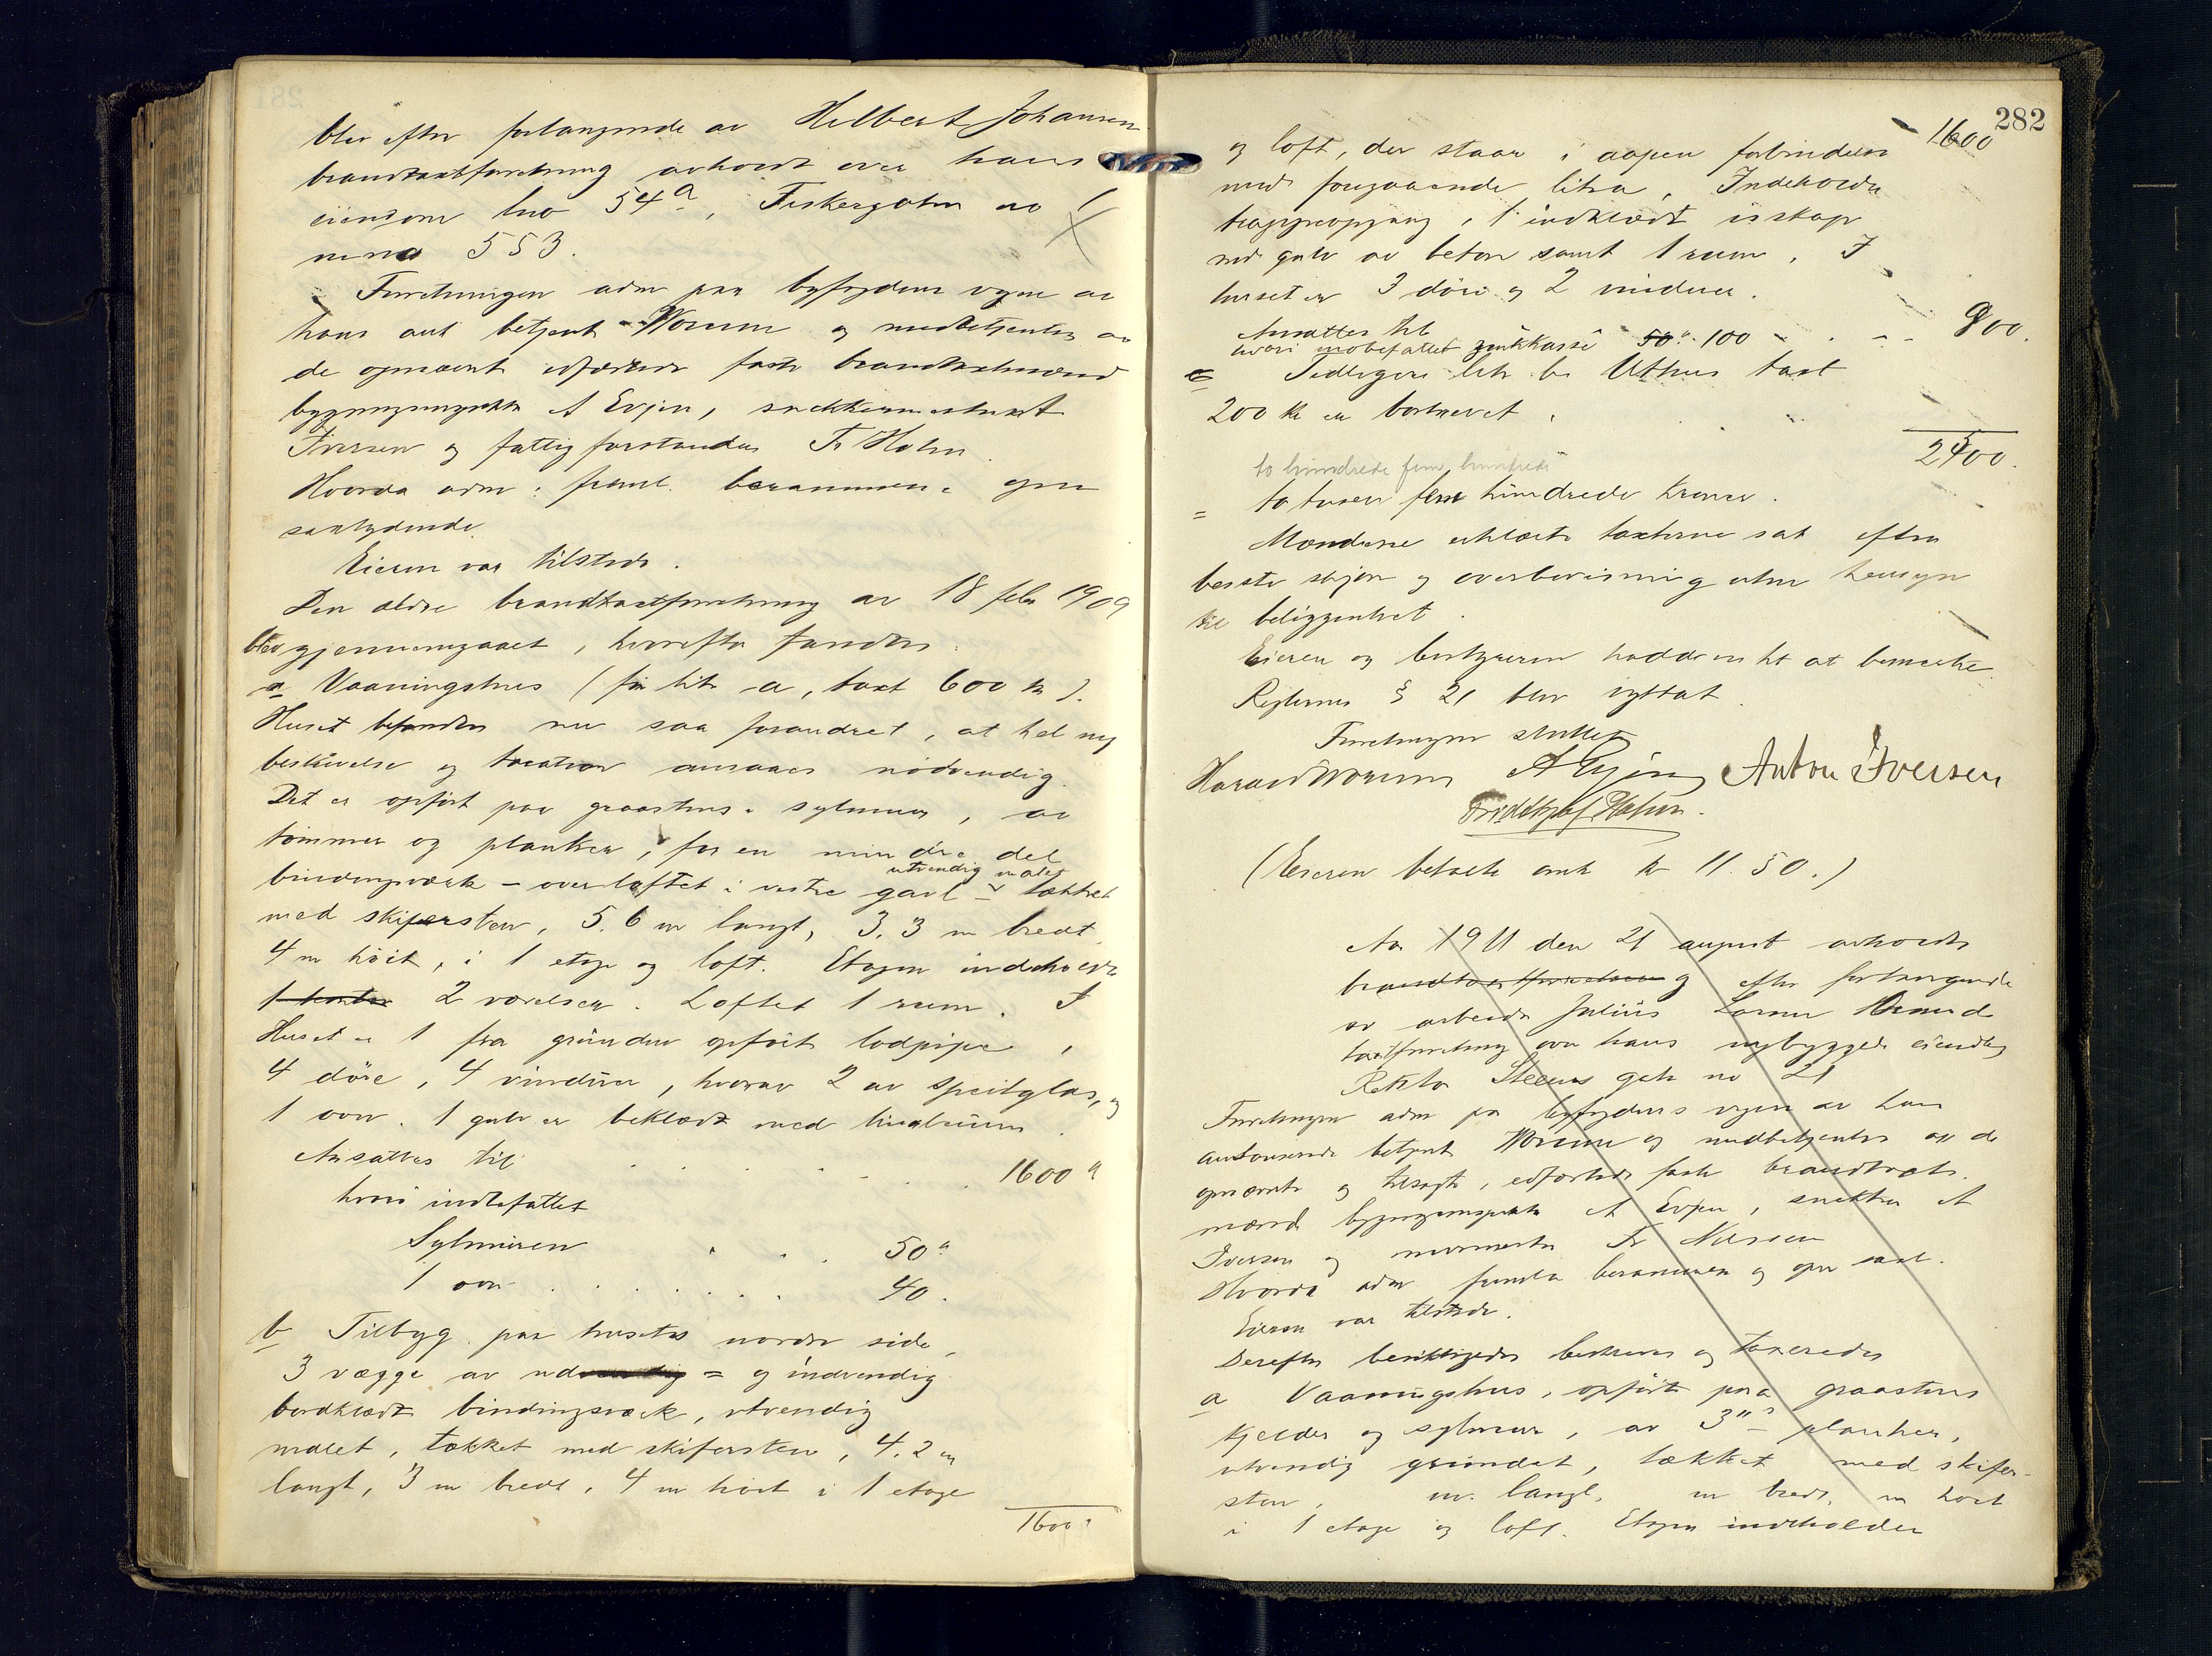 blev efter forlangende av Helbert Johansen
brandtaxtforretning avholdt over hans
eiendom lno 54a, Fiskergaten av
no 553.
Forretningen adm paa byfogdens vegne av
hans aut betjent Worum og medbetjentes av
de opnævnte edfæstede faste brandtaxtmænd
bygningsinspektør A Evjen, snekkermester A
Iversen og fattigforstander Fr Holm.
Hvorda adm: freml. berammelse gjen
saalydende.
Eieren var tilstede.
Den ældre brandtaxtforretning av 18 febr 1909
blev gjennemgaaet, hvorefter fandtes:
a Vaaningshus (før litr a, taxt 600 kr).
Huset befandtes nu saa forandret, at hel ny
beskrivelse og taxation ansaaes nödvendig.
Det er opfört paa graastens sylmur, av
tömmer og planker, for en mindre del
bindingsværk - over loftet i vestre gavl - utvendig malet tækket
med skifersten, 5.6 m langt, 3.3 m bredt
4 m höit, i 1 etage og loft. Etagen indeholder
2 værelser. Loftet 1 rum. I
Huset er 1 fra grunden opfört lodpipe,
4 döre, 4 vinduer, hvorav 2 av speilglas, og
1 ovn. 1 gulv er beklædt med linoleum.
Ansattes til . . . . . . 1600 "
hvori indbefattet
Sylmuren . . . 50 "
1 ovn . . . . . . 40.
b Tilbyg paa husets nordre side,
3 vægge av ud= og indvendig
bordklædt bindingsværk, utvendig
malet, tækket med skifersten, 4.2 m
langt, 3 m bredt, 4 m höit i 1 etage
1600 "
282
1600
og loft, der staar i aapen forbindelse
med foregaaende litra. Indeholder
trappeopgang, 1 indklædt isskap
med gulv av beton samt 1 rum. I
huset er 3 döre og 2 vinduer.
Ansattes til . . . 900.
hvori indbefattet zinkkasse 50" 100
c Tidligere litr b. Uthus taxt
200 kr er borttrevet.
2500.
to hundrede fem hundrede
= to tusen fem hundrede kroner.
Mændene erklærte taxterne sat efter
beste skjön og overbevisning uten hensyn
til beliggenhet.
Eieren og bestyreren hadde intet at bemerke.
Reglernes § 21 blev iagttat.
Forretningen sluttet
Harald Worum A Evjen Anton Iversen
Fridthjof Holm.
(Eieren betalte omk kr 11.50.)
Aar 1911 den 21 august avholdtes
brandtaxtforretning efter forlangende
av arbeider Julius Larsen Brand
taxtforretning over hans nybyggede eiendom
Rektor Steens gate no 21
Forretningen adm paa byfogdens vegne av hans
autoriserede betjent Worum og medbetjentes av de
opnævnte og tilsagte, edfæstede faste brandtaxt-
mænd bygningsinspektør A Evjen, snekker A
Iversen og murmester Fr Nilsen
Hvorda adm fremla berammelse og gjen saal.
Eieren var tilstede.
Derefter besiktigedes beskreves og taxeredes
a Vaaningshus, opfört paa graastens
kjelder og sylmur, av 3" planker,
utvendig grundet, tækket med skifer-
sten, m. langt, m bredt, m höit
i 1 etage og loft. Etagen indeholder